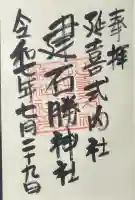 奉拝
延喜式内社
建石勝神社
令和七年七月二十九日